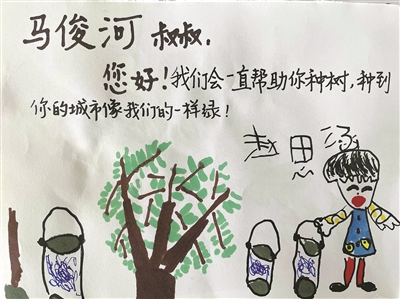 马俊河 叔叔,
您好!我们会一直帮助你种树,种到
你的城市像我们的一样绿!
赵思涵